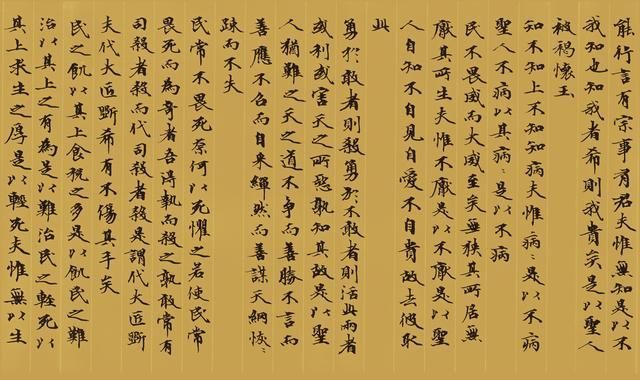 能行言有宗事有君夫惟無知是以不
我知也知我者希則我貴矣是以聖人
被褐懷玉
知不知上不知知病夫惟病〻是以不病
聖人不病以其病〻是以不病
民不畏威而大威至矣無狹其所居無
厭其所生夫惟不厭是以不厭是以聖
人自知不自見自愛不自貴故去彼取
此
勇於敢者則殺勇於不敢者則活此兩者
或利或害天之所惡孰知其故是以聖
人猶難之天之道不爭而善勝不言而
善應不召而自来繟然而善謀天網恢〻
踈而不失
民常不畏死奈何以死懼之若使民常
畏死而為奇者吾得執而殺之孰敢常有
司殺者殺而代司殺者殺是謂代大匠斲
夫代大匠斲希有不傷其手矣
民之飢以其上食稅之多是以飢民之難
治以其上之有為是以難治民之輕死以
其上求生之厚是以輕死夫惟無以生